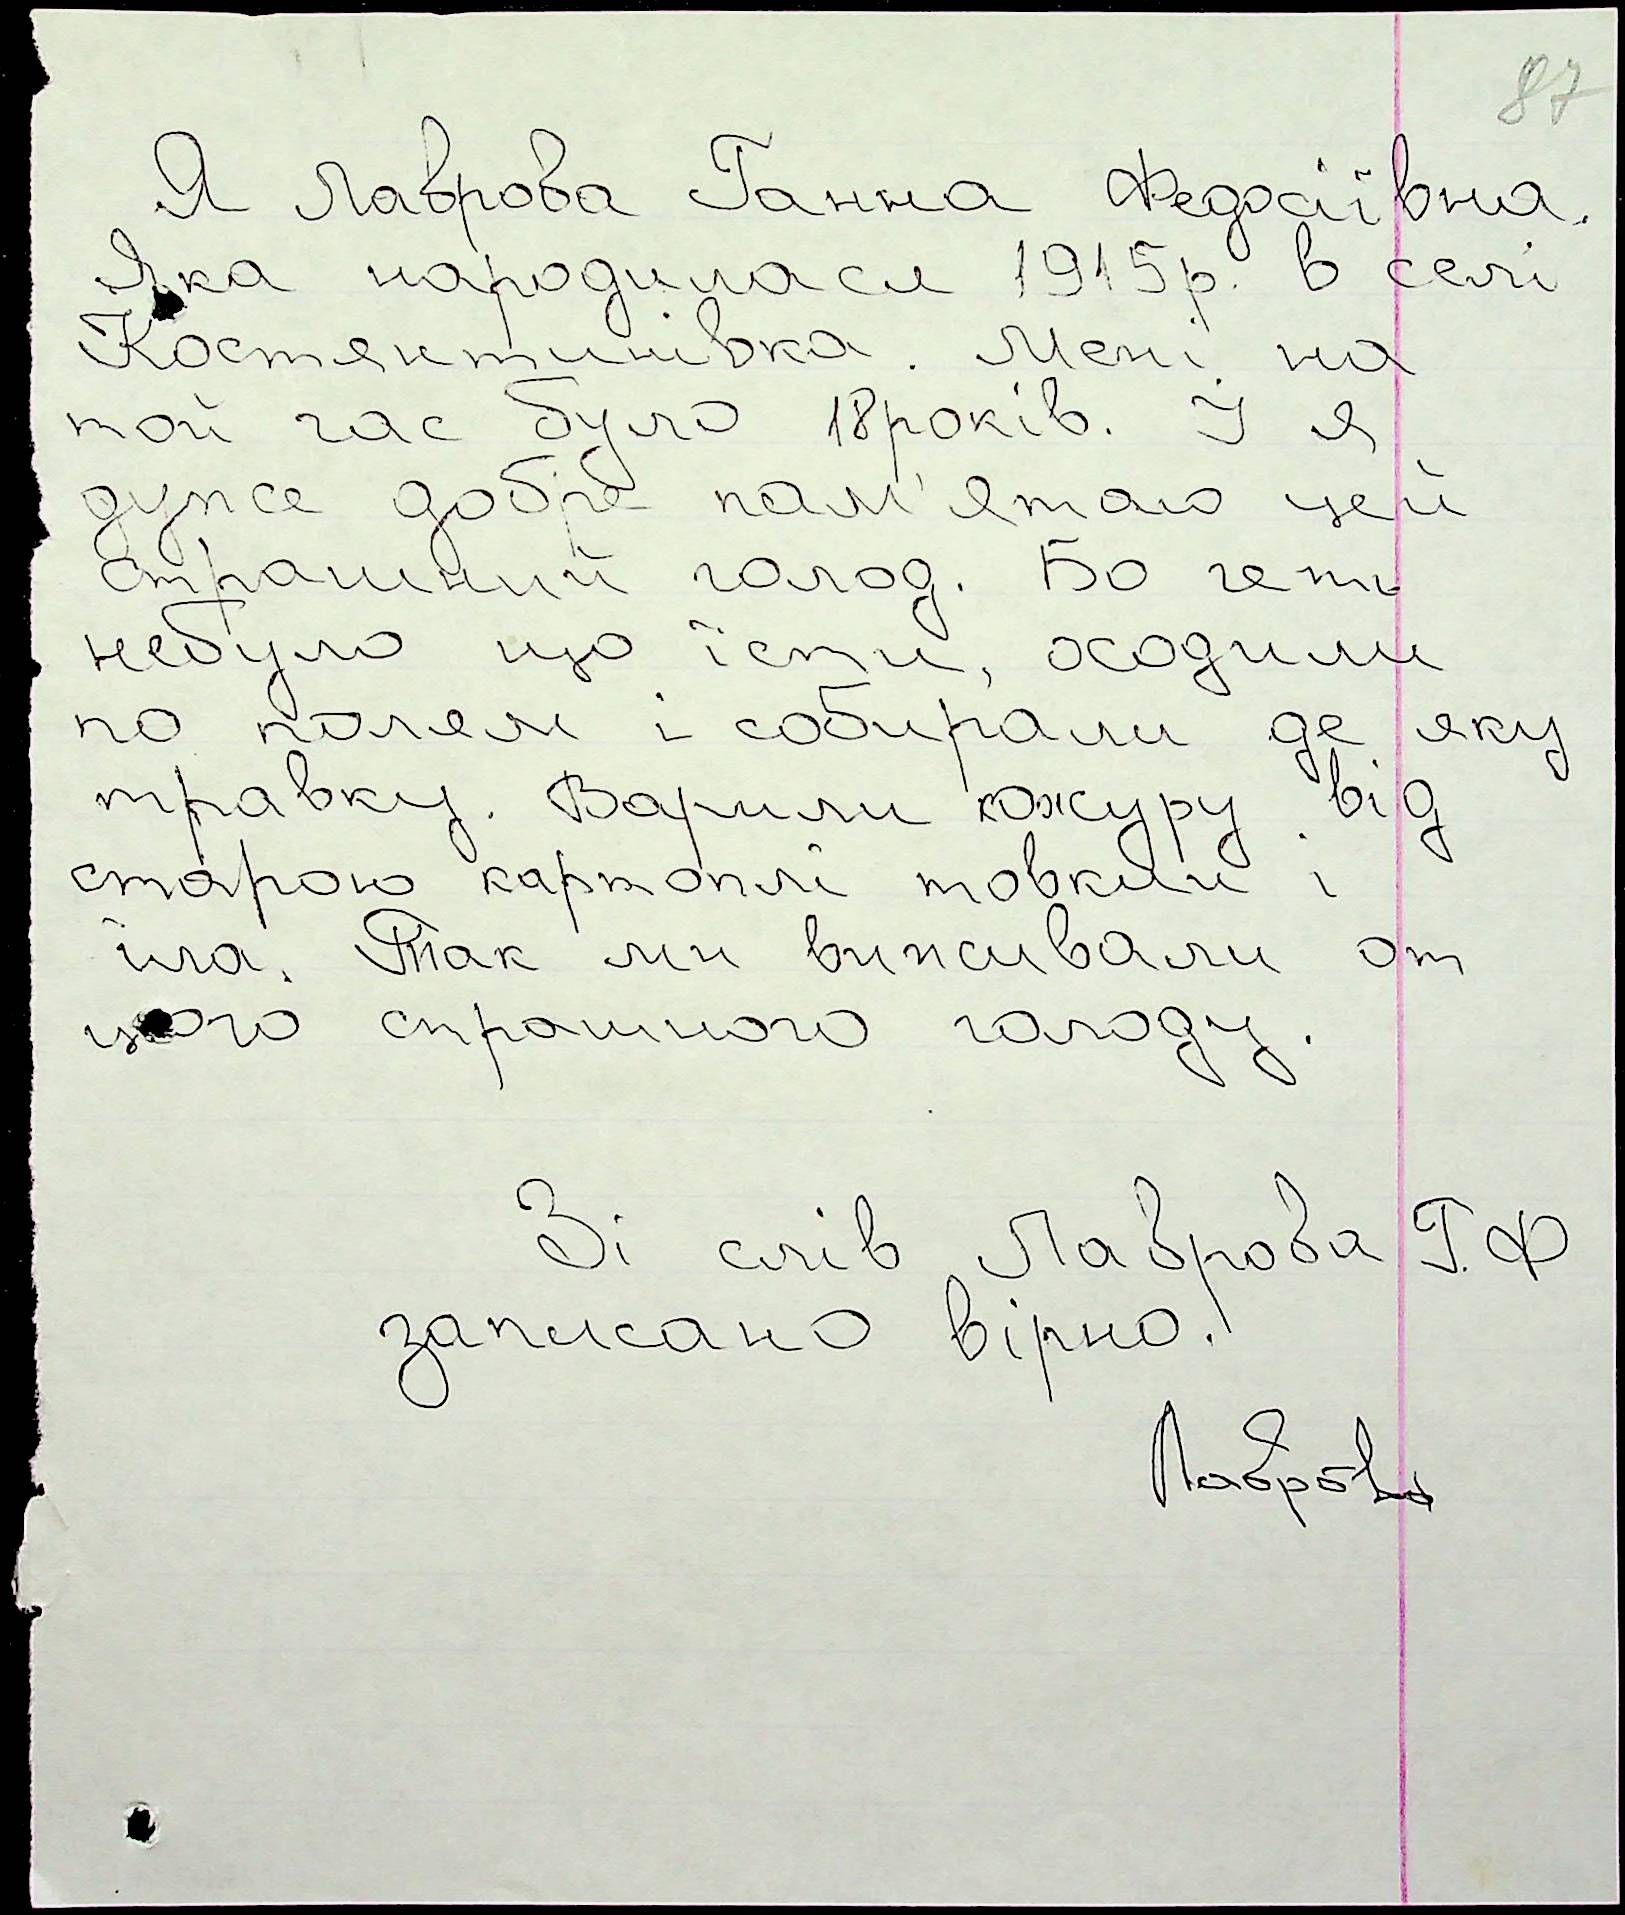 87
Я Лаврова Ганна Федосіївна.
Яка народилася 1915р. в селі
Костянтинівка. Мені на
той час було 18років. І я
дуже добре пам'ятаю цей
страшний голод. Бо геть
небуло що їсти, ходили
по полям і собирали де яку
травку. Варили кожуру від
старою картоплі товкли і
їла. Так ми виживали от
цього страшного голоду.
Зі слів Лаврова Г.Ф
записано вірно.
Лаврова